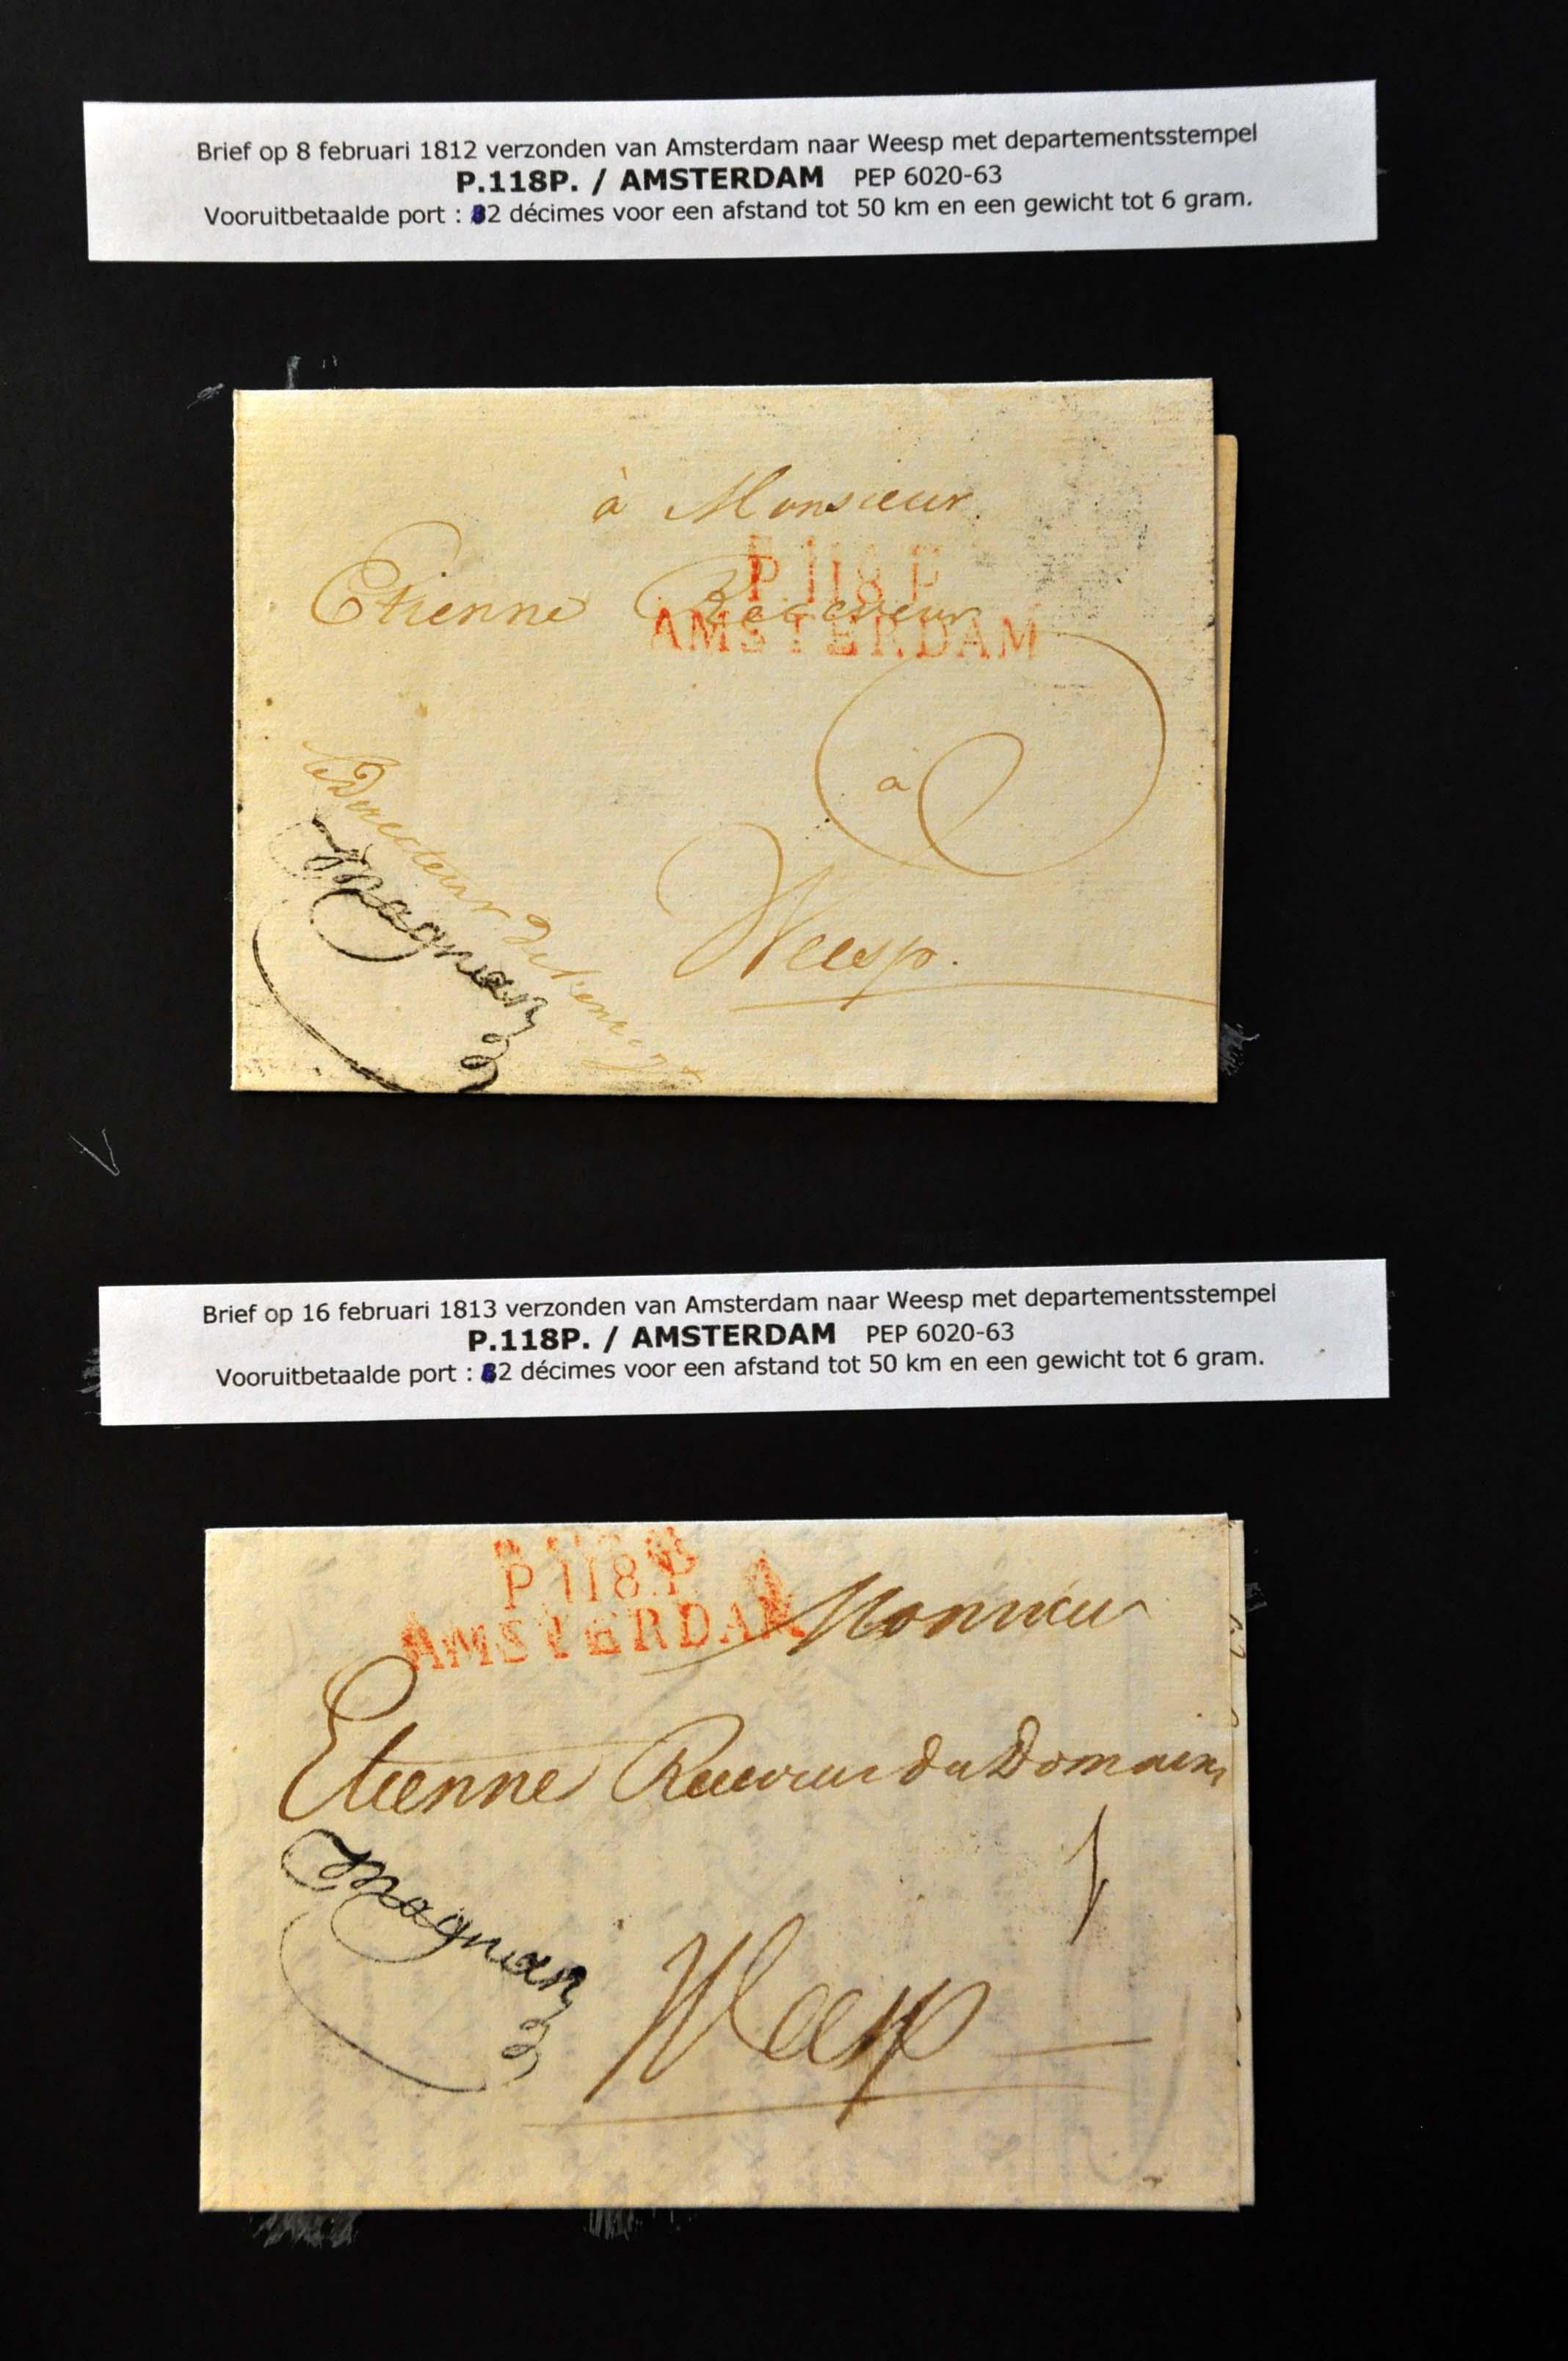 Brief op 8 februari 1812 verzonden van Amsterdam naar Weesp met departementsstempel
P.118P. / AMSTERDAM PEP 6020-63
Vooruitbetaalde port : 2 décimes voor een afstand tot 50 km en een gewicht tot 6 gram.
à Monsieur
P.118.P
Etienne Receveur
AMSTERDAM
à
Le Directeur
Magnan
Weesp.
Brief op 16 februari 1813 verzonden van Amsterdam naar Weesp met departementsstempel
P.118P. / AMSTERDAM PEP 6020-63
Vooruitbetaalde port : 2 décimes voor een afstand tot 50 km en een gewicht tot 6 gram.
P.118.P
AMSTERDAM
Monsieur
Etienne Receveur du Domaine
Magnan
Weesp